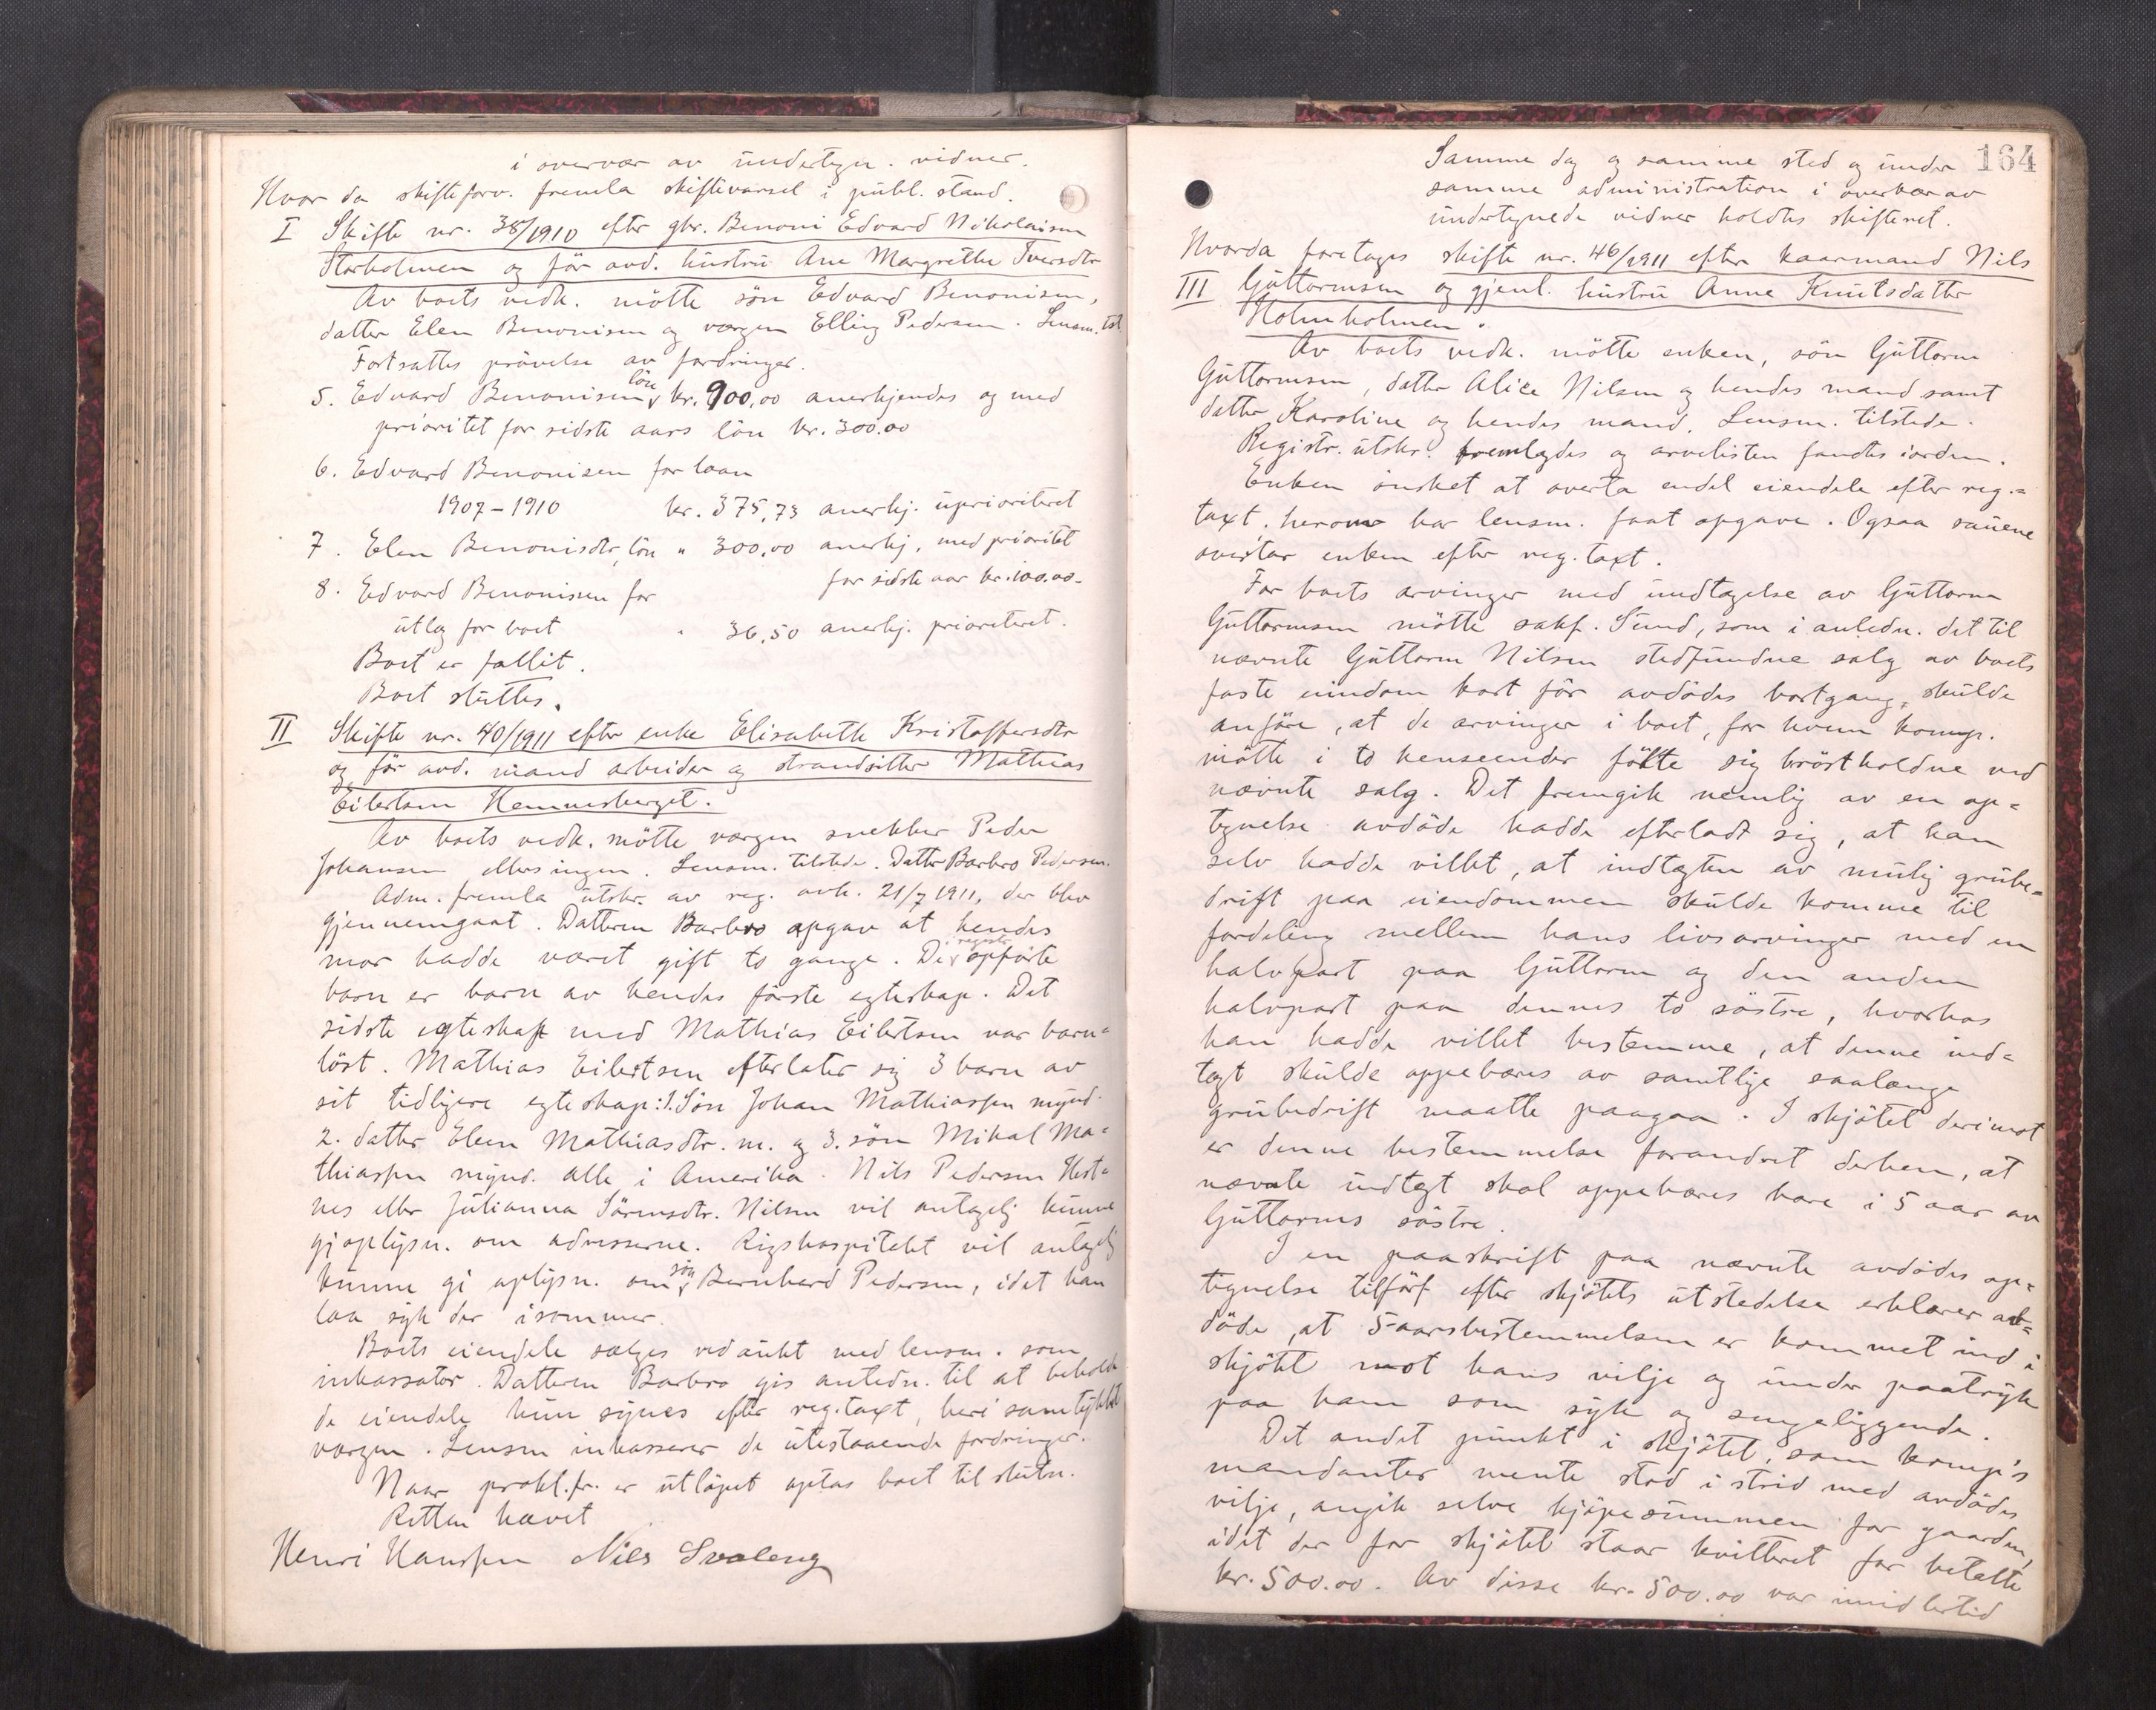 i overvær av undertegn. vidner.
Hvor da skifteforv. fremla skiftevarsel i publ. stand.
I Skifte nr. 38/1910 efter gbr. Benoni Edvard Nikolaisen
Storholmen og før avd. hustru Ane Margrethe Iversdtr
Av boets vedk. mötte sön Edvard Benonisen,
datter Elen Benonisen og værgen Elling Pedersen. Lensm. tst.
Fortsattes prövelse av fordringer.
5. Edvard Benonisen lön kr. 900,00 anerkjendes og med
prioritet for sidste aars lön kr. 300.00
6. Edvard Benonisen for laan
1907-1910 kr. 375,73 anerkj. uprioriteret
7. Elen Benonisdtr, lön " 300,00 anerkj, med prioritet
for sidste aar kr. 100.00-
8. Edvard Benonisen for
utlæg for boet " 36,50 anerkj. prioriteret.
Boet er fallit.
Boet sluttes.
II Skifte nr. 40/1911 efter enke Elisabeth Kristoffersdtr
og för avd. mand arbeider og strandsitter Mathias
Eilertsen Hemnesberget.
Av boets vedk. mötte værgen snekker Peder
Johansen ellers ingen. Lensm. tilstede. Datter Barbro Pedersen.
Adm. fremla utskr. av reg. avh. 21/7 1911, der blev
gjennemgaat. Datteren Barbro opgav at hendes
mor hadde været gift to gange. De i registr. opförte
barn er barn av hendes förste egteskap. Det
sidste egteskap med Mathias Eilertsen var barn=
löst. Mathias Eilertsen efterlater sig 3 barn av
sit tidligere egteskap: 1. Sön Johan Mathiassen mynd.
2. datter Elen Mathiasdtr. m. og 3. sön Mikal Ma=
thiassen mynd. alle i Amerika. Nils Pedersen Hest=
nes eller Julianna Sörensdtr. Nilsen vil antagelig kunne
gi oplysn. om adresserne. Rigshospitalet vil antagelig
kunne gi oplysn. om sön Bernhard Pedersen, idet han
laa syk der isommer.
Boets eiendele sælges ved aukt med lensm. som
inkassator. Datteren Barbro gis anledn. til at beholde
de eiendele hun synes efter reg. taxt, heri samtykket
værgen. Lensm inkasserer de utestaaende fordringer.
Naar prokl.fr. er utløpet optas boet til slutn.
Retten hævet
Henri Hanssen Nils Svaleng
164
Samme dag og samme sted og under
samme administration i overvær av
undertegnede vidner holdtes skifteret.
Hvorda foretages skifte nr. 46/1911 efter kaarmand Nils
III Guttormsen og gjenl. hustru Anne Knutsdatter
Holmholmen.
Av boets vedk. mötte enken, sön Guttorm
Guttormsen, datter Alice Nilsen og hendes mand samt
datter Karoline og hendes mand. Lensm. tilstede.
Registr. utskr. fremlagdes og arvelisten fandtes iorden.
Enken önsket at overta endel eiendele efter reg.=
taxt. herom har lensm. faat opgave. Ogsaa sauene
overtar enken efter reg. taxt.
For boets arvinger med undtagelse av Guttorm
Guttormsen mötte sakf. Sund, som i anledn. det til
nævnte Guttorm Nilsen stedfundne salg av boets
faste eiendom kort för avdödes bortgang, skulde
anföre, at de arvinger i boet, for hvem komp.
mötte i to henseender fölte sig bröstholdne ved
nævnte salg. Det fremgik nemlig av en op=
tegnelse avdöde hadde efterladt sig, at han
selv hadde villet, at indtægten av mulig grube=
drift paa eiendommen skulde komme til
fordeling mellem hans livsarvinger med en
halvpart paa Guttorm og den anden
halvpart paa dennes to söstre, hvorhos
han hadde villet bestemme, at denne ind=
tægt skulde oppebæres av samtlige saalænge
grubedrift maatte paagaa. I skjötet derimot
er denne bestemmelse forandret derhen, at
nævnte indtægt skal oppebæres bare i 5 aar av
Guttorms söstre.
I en paaskrift paa nævnte avdödes op=
tegnelse tilföiet efter skjötets utstedelse erklærer av=
döde, at 5-aarsbestemmelsen er kommet ind i
skjötet mot hans vilje og under paatryk
paa ham som syk og sengeliggende.
Det andet punkt i skjötet, som komp's
mandanter mente stod i strid med avdödes
vilje, angik selve kjöpesummen for gaarden,
idet der for skjötet staar kvitteret for betalte
kr. 500.00. Av disse kr. 500.00 var imidlertid